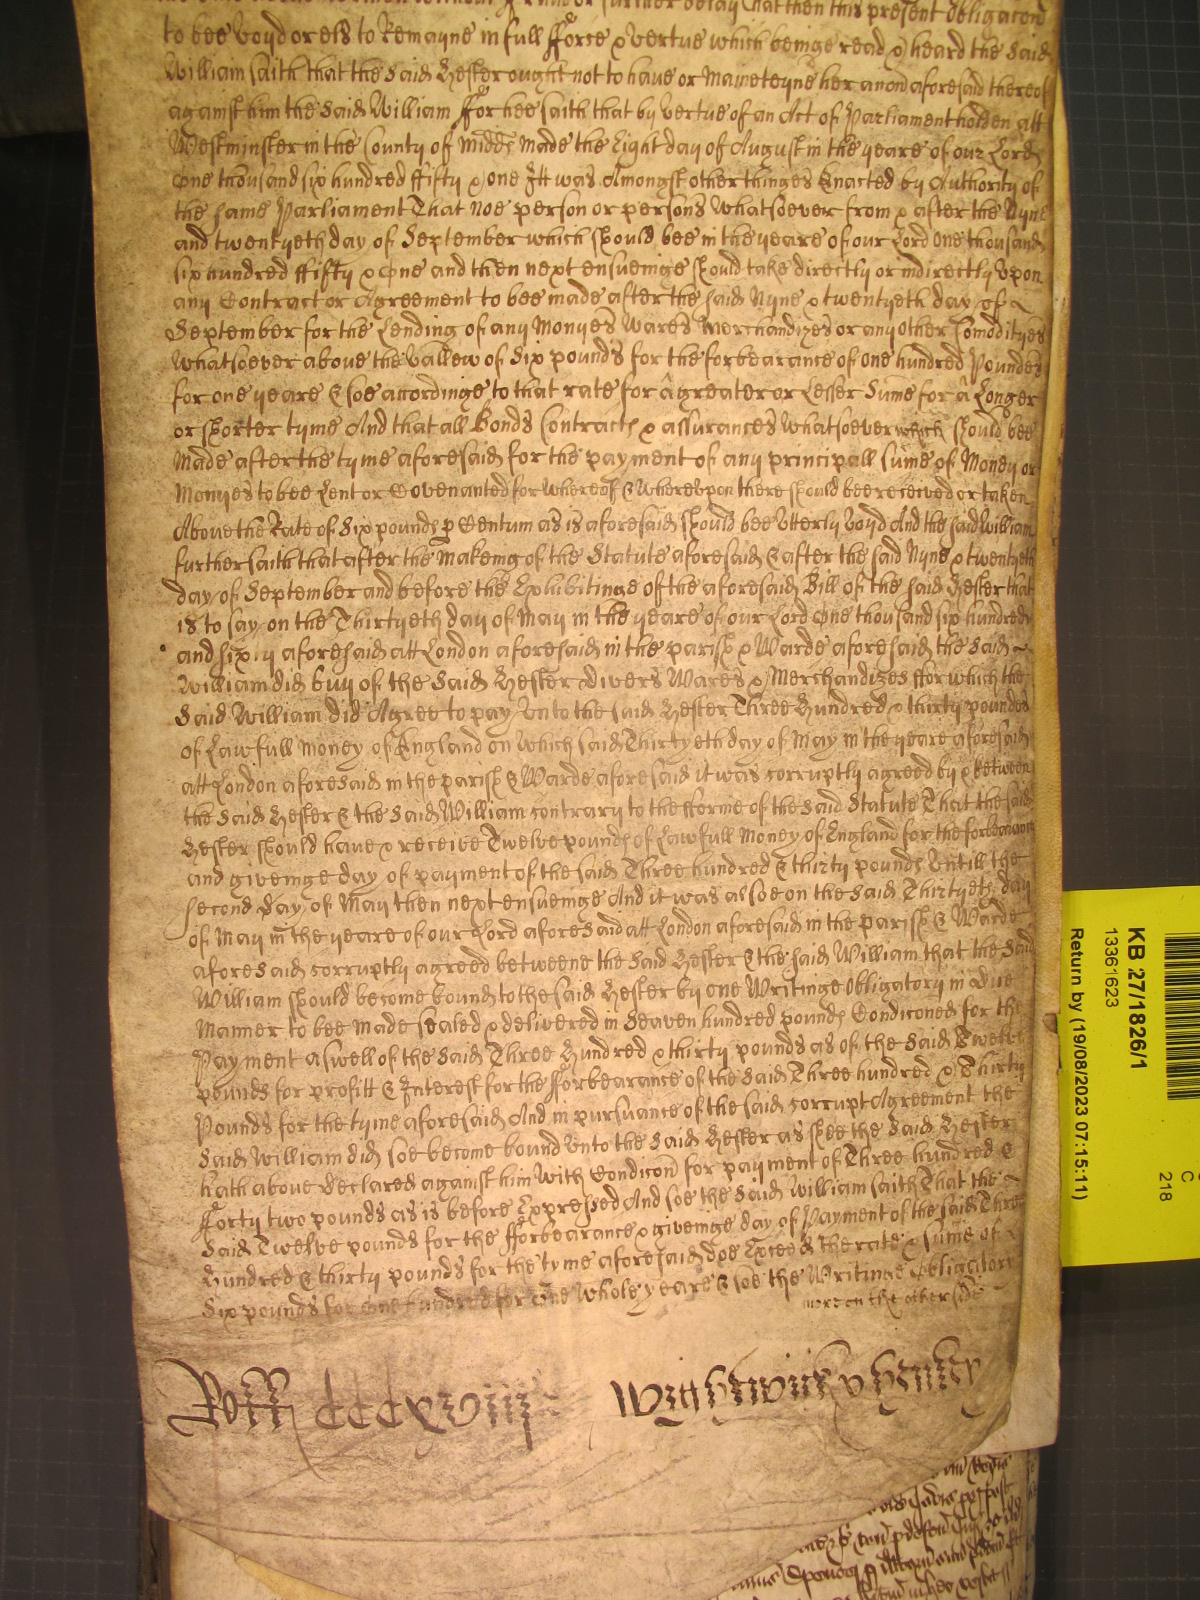 without fraud or further delay That then this present Obligacon
to bee voyd or els to Remayne in full fforce & vertue which beinge read & heard the said
William saith that the said Hester ought not to have or Mainteyne her accon aforesaid thereof
against him the said William ffor hee saith that by vertue of an Act of Parliament holden att
Westminster in the County of Midds Made the Eight day of August in the yeare of our Lord
One thousand six hundred ffifty & one Itt was Amongst other thinges Enacted by Authority of
the same Parliament That noe person or persons whatsoever from & after the Nyne
and twentyeth day of September which should bee in the yeare of our Lord One thousand
six hundred ffifty & One and then next ensueinge should take directly or indirectly vpon
any Contract or Agreement to bee made after the said Nyne & twentyeth day of
September for the Lending of any Monyes Wares Merchandizes or any other Comodityes
whatsoever above the vallew of Six pounds for the forbearance of one hundred Poundes
for one yeare & soe accordinge to that rate for a greater or Lesser Sume for a Longer
or shorter tyme And that all Bonds Contracts & assurances whatsoever which should bee
Made after the tyme aforesaid for the payment of any principall sume of Money or
Monyes to bee Lent or Covenanted for whereof & wherevpon there should bee received or taken
Above the Rate of Six pounds p Centum as is aforesaid should bee Vtterly Voyd And the said William
further saith that after the makeing of the Statute aforesaid & after the said Nyne & twentyeth
day of September and before the Exhibitinge of the aforesaid Bill of the said Hester that
is to say on the Thirtyeth day of May in the yeare of our Lord One thousand six hundred
and sixty aforesaid att London aforesaid in the parish & Warde aforesaid the said
William did buy of the said Hester divers Wares & Merchandizes ffor which the
said William did Agree to pay Vnto the said Hester Three Hundred & thirty pounds
of Lawfull money of England on which said Thirtyeth day of May in the yeare aforesaid
att London aforesaid in the parish & Warde aforesaid it was corruptly agreed by & between
the said Hester & the said William contrary to the fforme of the said Statute That the said
Hester should have & receive Twelve pounds of Lawfull Money of England for the forbearance
and giveinge day of payment of the said Three hundred & thirty pounds Vntill the
second day of May then next ensueinge And it was alsoe on the said Thirtyeth day
of May in the yeare of our Lord aforesaid att London aforesaid in the parish & Warde
aforesaid corruptly agreed betweene the said Hester & the said William that the said
William should become bound to the said Hester by one Writinge Obligatory in due
Manner to bee made sealed & delivered in Seaven hundred pounds Condiconed for the
Payment aswell of the said Three Hundred & thirty pounds as of the said Twelve
pounds for profitt & Interest for the fforbearance of the said Three hundred & Thirty
Pounds for the tyme aforesaid And in pursuance of the said corrupt Agreement the
said William did soe become bound Vnto the said Hester as shee the said Hester
hath above declared against him With Condicon for payment of Three hundred &
fforty two pounds as is before Expressed And soe the said William saith That the
said Twelve pounds for the fforbearance & giveinge day of Payment of the said Three
Hundred & thirty pounds for the tyme aforesaid doe Exceed the rate & sume of
Six pounds for one hundred for One whole yeare & soe the Writinge Obligatory
more on the other side
Roll CCCxviij
KB 27/1826/1
13361623
Return by (19/08/2023 07:15:11)
C
218